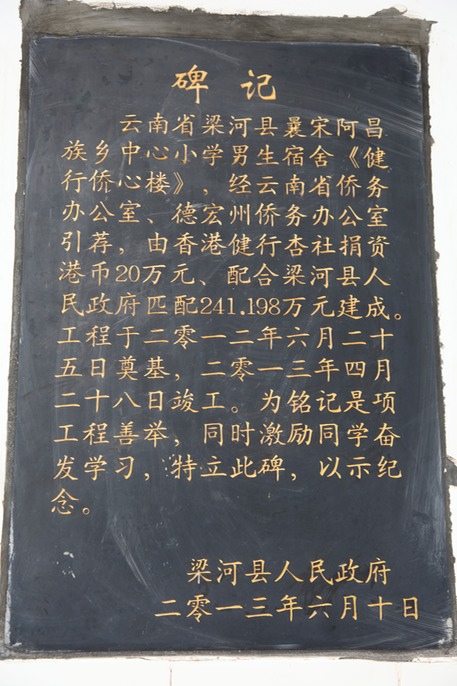 碑记
云南省梁河县曩宋阿昌
族乡中心小学男生宿舍《健
行侨心楼》，经云南省侨务
办公室、德宏州侨务办公室
引荐，由香港健行杏社捐资
港币20万元、配合梁河县人
民政府匹配241.198万元建成。
工程于二零一二年六月二十
五日奠基，二零一三年四月
二十八日竣工。为铭记是项
工程善举，同时激励同学奋
发学习，特立此碑，以示纪
念。
梁河县人民政府
二零一三年六月十日